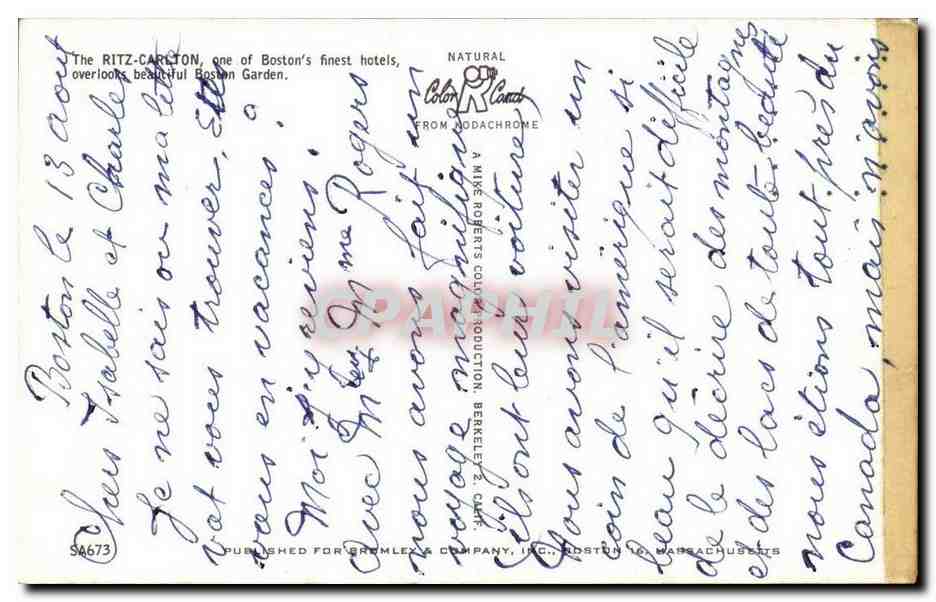 The RITZ-CARLTON, one of Boston's finest hotels,
overlooks beautiful Boston Garden.
NATURAL
Color R Card
FROM KODACHROME
A MIKE ROBERTS COLOR PRODUCTION, BERKELEY 2, CALIF.
SA673
PUBLISHED FOR BROMLEY & COMPANY, INC., BOSTON 16, MASSACHUSETTS
CPAPHIL
Boston le 13 aout
Chers Isabelle et Charles
Je ne sais ou ma lettre
vat vous trouver. Etes
vous en vacances à
Moi j'y reviens.
Avec Mr et Mme Rogers
nous avons fait un
voyage magnifique
Ils ont leur voiture
Nous avons visiter un
coin de l'amérique si
beau qu'il serait difficile
de le décrire des montagnes
et des lacs de toute beauté
nous étions tout près du
Canada, mais n'avois